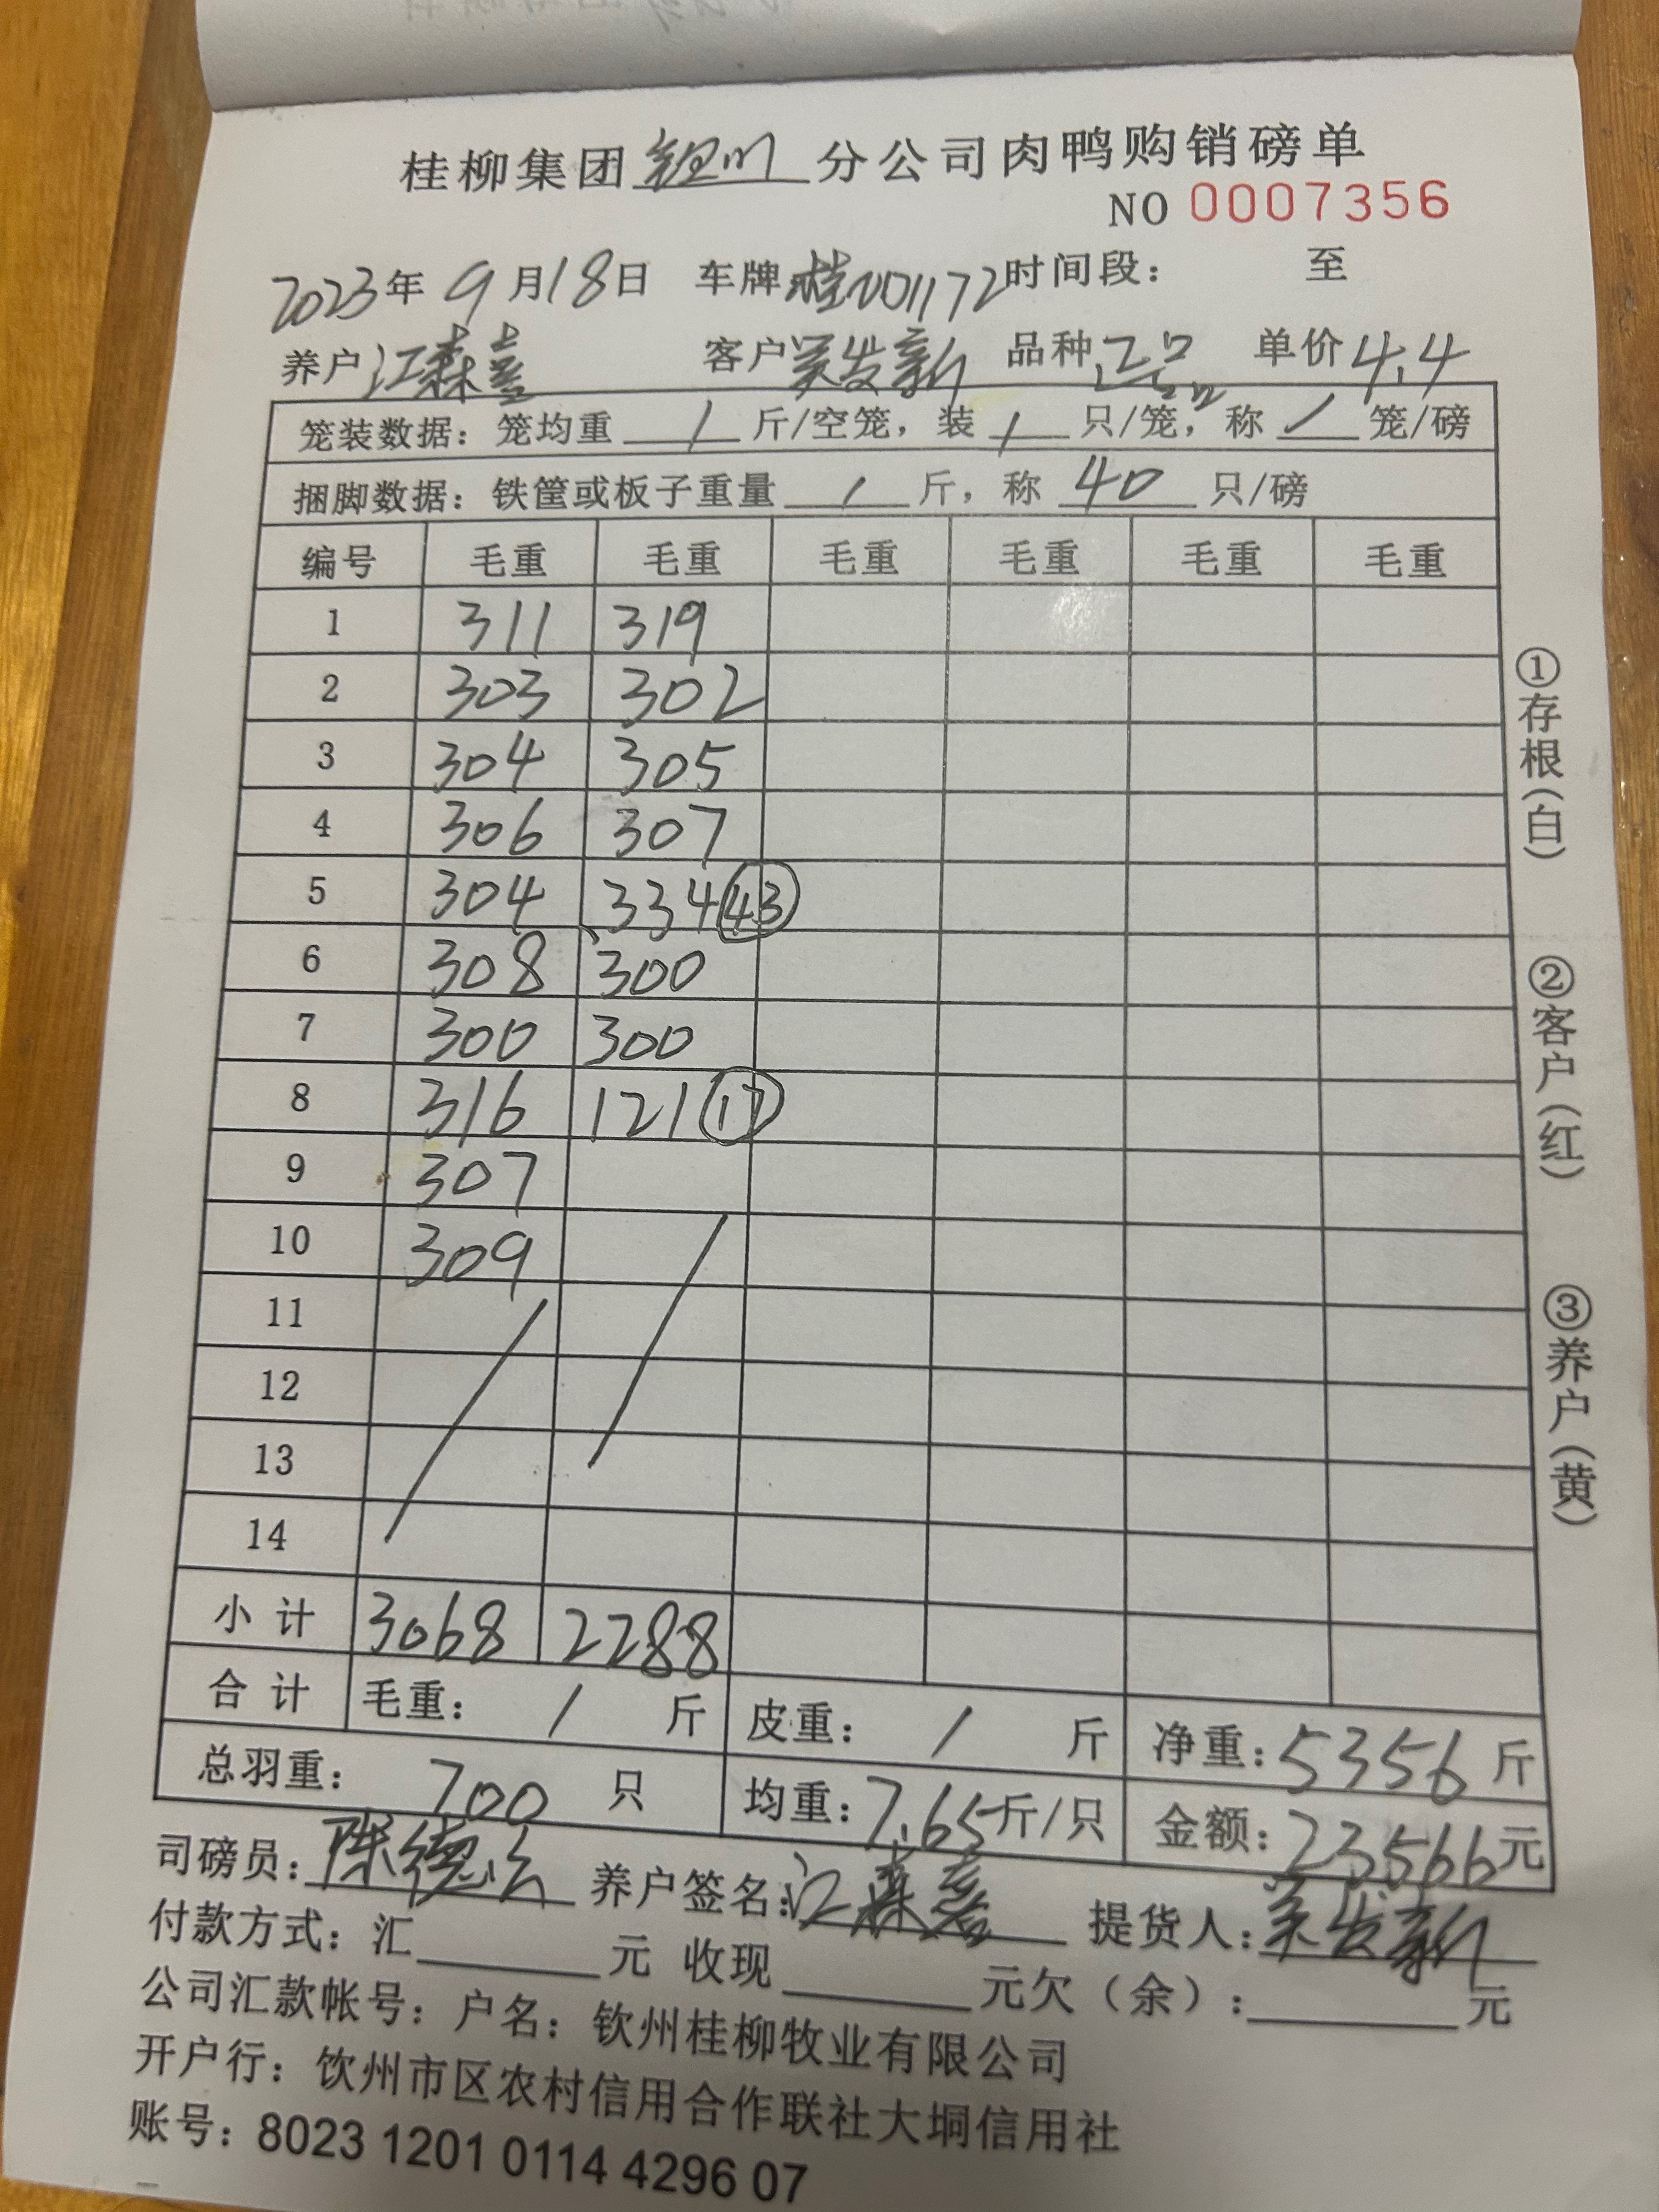 桂柳集团钦州分公司肉鸭购销磅单
NO 0007356
2023年 9月18日 车牌 桂N01172 时间段： 至
养户 江森喜 客户 吴发新 品种 正品 单价 4.4
笼装数据：笼均重 / 斤/空笼，装 / 只/笼，称 / 笼/磅
捆脚数据：铁筐或板子重量 / 斤，称 40 只/磅
编号 毛重 毛重 毛重 毛重 毛重 毛重
1 311 319
2 303 302
3 304 305
4 306 307
5 304 334 43
6 308 300
7 300 300
8 316 121 17
9 307
10 309
11
12
13
14
小计 3068 2288
合计 毛重： / 斤 皮重： / 斤 净重：5356 斤
总羽重： 700 只 均重：7.65斤/只 金额：23566元
司磅员：陈德 养户签名：江森喜 提货人：吴发新
付款方式：汇 元 收现 元欠（余）： 元
公司汇款帐号：户名：钦州桂柳牧业有限公司
开户行：钦州市区农村信用合作联社大垌信用社
账号：8023 1201 0114 4296 07
①存根（白）
②客户（红）
③养户（黄）